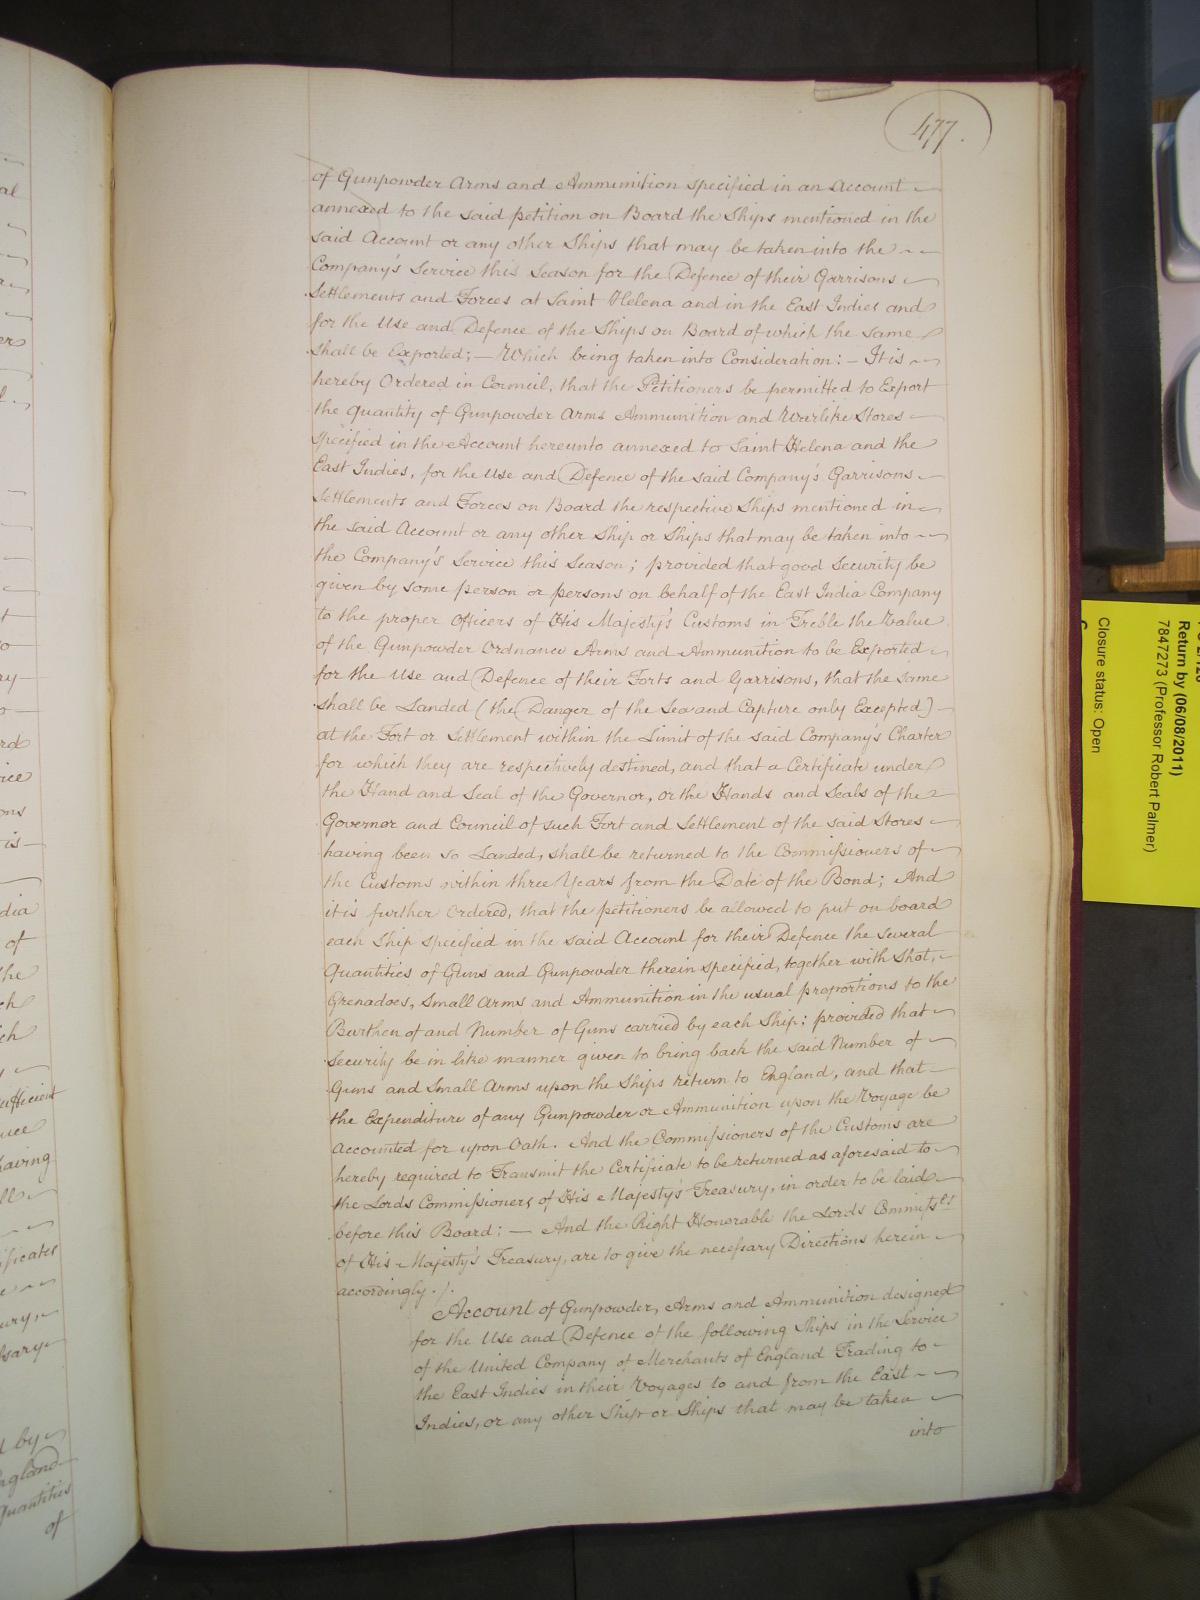 477.
of Gunpowder Arms and Ammunition specified in an Account
annexed to the said petition on Board the Ships mentioned in the
said Account or any other Ships that may be taken into the
Company's Service this Season for the Defence of their Garrisons
Settlements and Forces at Saint Helena and in the East Indies and
for the Use and Defence of the Ships on Board of which the same
shall be Exported; — Which being taken into Consideration: — It is
hereby Ordered in Council, that the Petitioners be permitted to Export
the Quantity of Gunpowder Arms Ammunition and Warlike Stores
specified in the Account hereunto annexed to Saint Helena and the
East Indies, for the Use and Defence of the said Company's Garrisons
Settlements and Forces on Board the respective Ships mentioned in
the said Account or any other Ship or Ships that may be taken into
the Company's Service this Season; provided that good Security be
given by some person or persons on behalf of the East India Company
to the proper Officers of His Majesty's Customs in Treble the Value
of the Gunpowder Ordnance Arms and Ammunition to be Exported
for the Use and Defence of their Forts and Garrisons, that the same
shall be Landed (the Danger of the Sea and Capture only Excepted)
at the Fort or Settlement within the Limit of the said Company's Charter
for which they are respectively destined, and that a Certificate under
the Hand and Seal of the Governor, or the Hands and Seals of the
Governor and Council of such Fort and Settlement of the said Stores
having been so Landed, shall be returned to the Commissioners of
the Customs within three Years from the Date of the Bond; And
it is further Ordered, that the petitioners be allowed to put on board
each Ship specified in the said Account for their Defence the several
Quantities of Guns and Gunpowder therein specified, together with Shot,
Grenadoes, Small Arms and Ammunition in the usual proportions to the
Burthen of and Number of Guns carried by each Ship; provided that
Security be in like manner given to bring back the said Number of
Guns and Small Arms upon the Ships return to England, and that
the Expenditure of any Gunpowder or Ammunition upon the Voyage be
Accounted for upon Oath. And the Commissioners of the Customs are
hereby required to Transmit the Certificate to be returned as aforesaid to
the Lords Commissioners of His Majesty's Treasury, in order to be laid
before this Board: — And the Right Honorable the Lords Commissrs
of His Majesty's Treasury, are to give the necessary Directions herein
accordingly./.
Account of Gunpowder, Arms and Ammunition designed
for the Use and Defence of the following Ships in the Service
of the United Company of Merchants of England Trading to
the East Indies in their Voyages to and from the East
Indies, or any other Ship or Ships that may be taken
into
Return by (06/08/2011)
7847273 (Professor Robert Palmer)
Closure status: Open